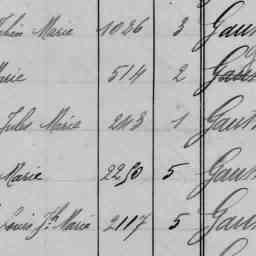 Marie 1026 3 Gaut
Marie 514 2
Jules Marie 243 1 Gaut
Marie 2250 5 Gaut
Louis Jh Marie 2117 5 Gau